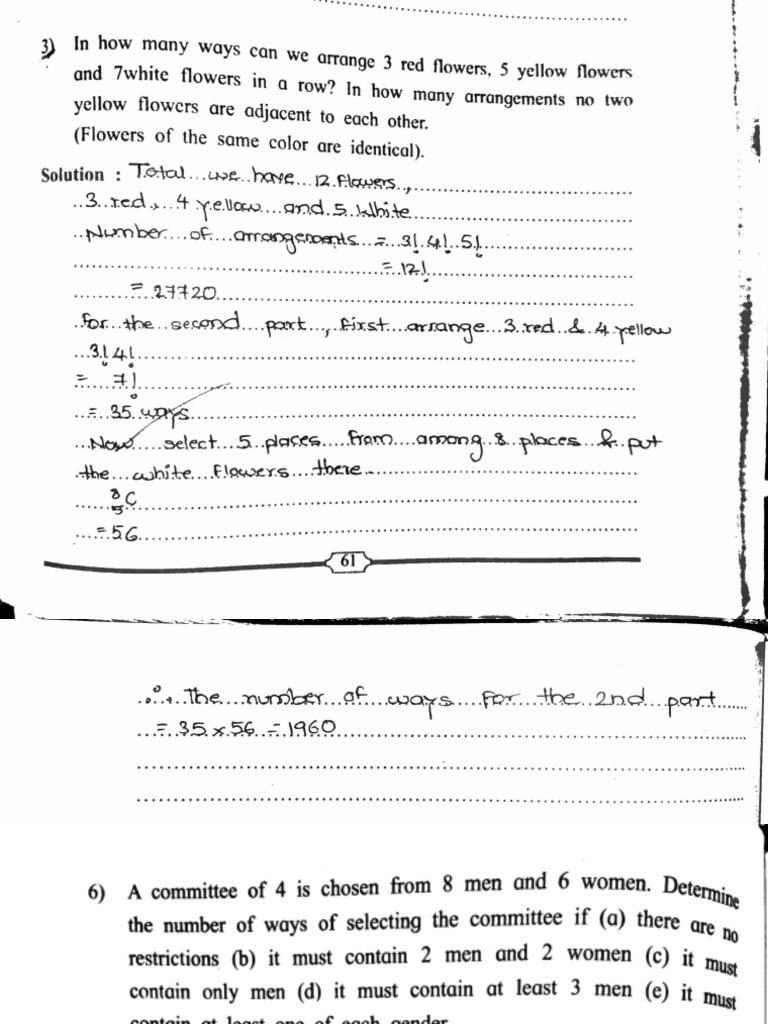 3) In how many ways can we arrange 3 red flowers, 5 yellow flowers
and 7white flowers in a row? In how many arrangements no two
yellow flowers are adjacent to each other.
(Flowers of the same color are identical).
Solution : Total we have 12 flowers,
3 red, 4 yellow and 5 White
Number of arrangements = 3! 4! 5!
= 12!
= 27720
for the second part, first arrange 3 red & 4 yellow
3! 4!
= 7!
= 35 ways
Now select 5 places from among 8 places & put
the white flowers there
8 C 5
= 56
61
∴ The number of ways for the 2nd part
= 35 × 56 = 1960
6) A committee of 4 is chosen from 8 men and 6 women. Determine
the number of ways of selecting the committee if (a) there are no
restrictions (b) it must contain 2 men and 2 women (c) it must
contain only men (d) it must contain at least 3 men (e) it must
contain at least one of each gender